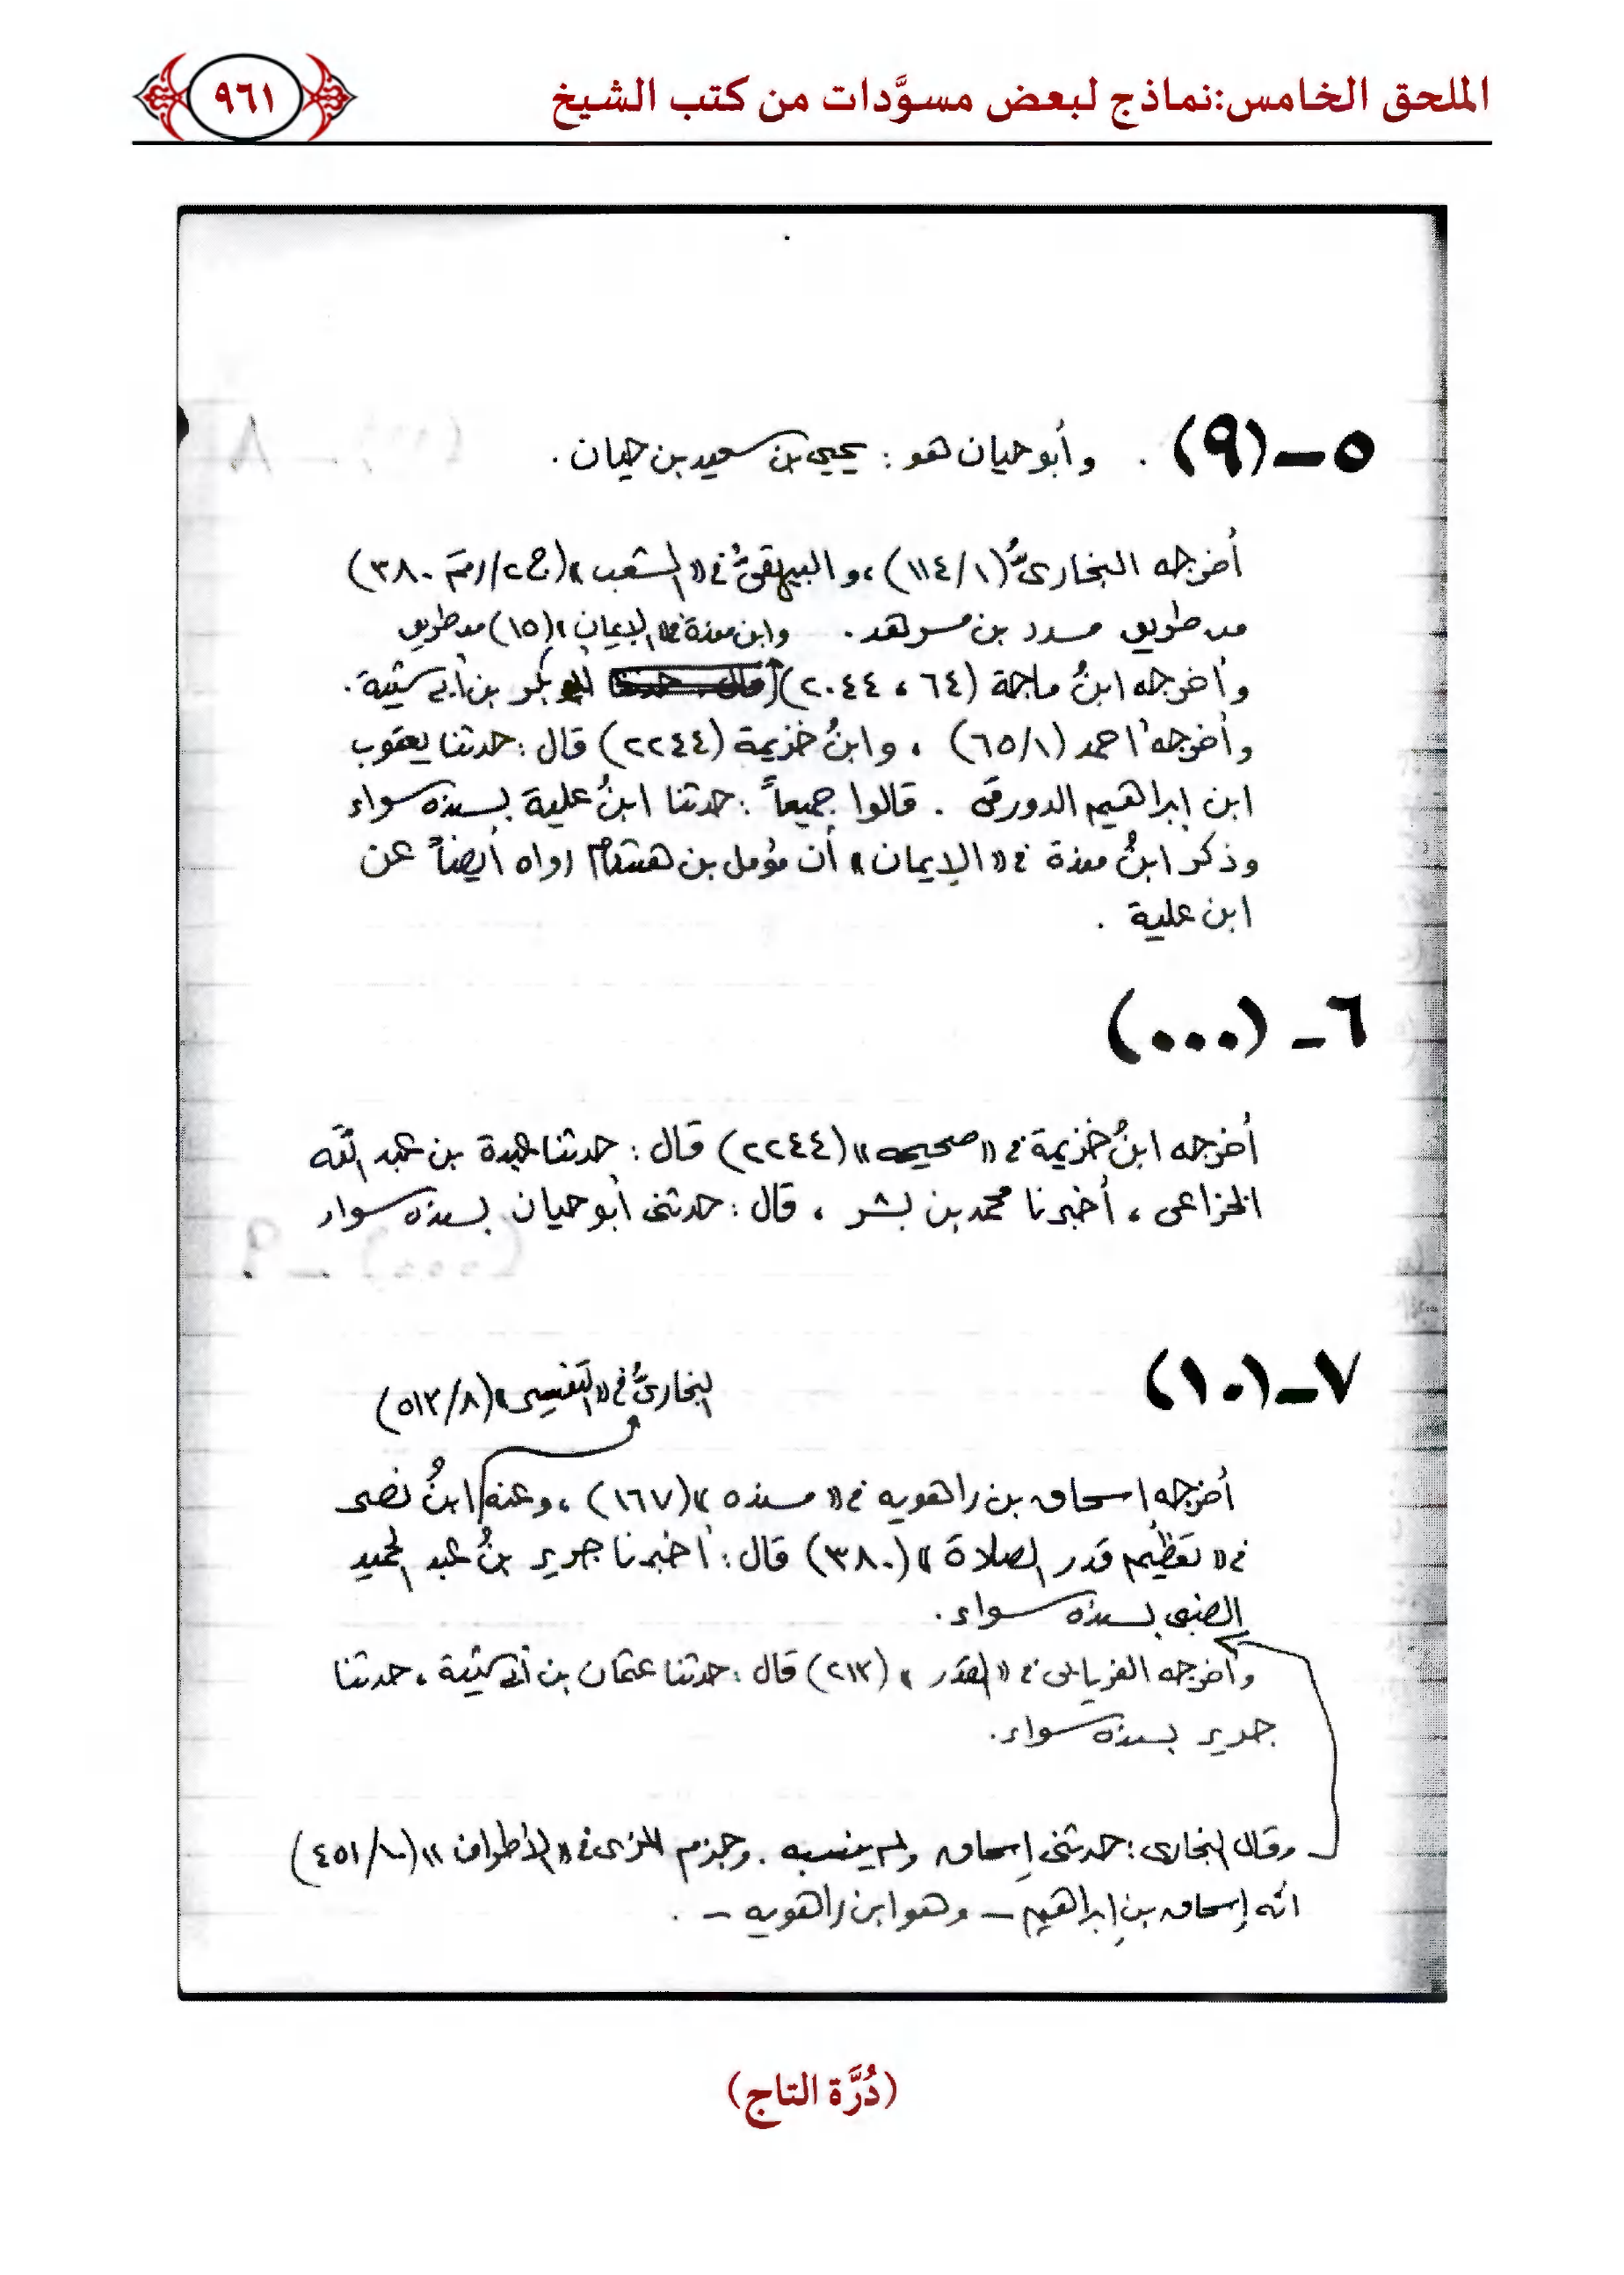 الملحق الخامس:نماذج لبعض مسوَّدات من كتب الشيخ
٩٦١
٥ – (٩) . وأبو حيان هو : يحيى بن سعيد بن حيان .
أخرجه البخاريُّ (١/١١٤) ، والبيهقيُّ في « الشعب » (ج٢/رقم ٣٨٠)
من طريق مسدد بن مسرهد .
وابن مندة في « الإيمان » (١٥) من طريق
وأخرجه ابنُ ماجة (٦٤ ، ٢٠٤٤) بكر بن أبي شيبة .
وأخرجه أحمد (١/٦٥) ، وابنُ خزيمة (٢٢٤٤) قال : حدثنا يعقوب
ابن إبراهيم الدورقى . قالوا جميعاً : حدثنا ابنُ علية بسنده سواء
وذكر ابنُ مندة في « الإيمان » أن مؤمل بن هشام رواه أيضاً عن
ابن علية .
٦ – (٠٠٠)
أخرجه ابنُ خزيمة في « صحيحه » (٢٢٤٤) قال : حدثنا عبدة بن عبد الله
الخزاعى ، أخبرنا محمد بن بشر ، قال : حدثنى أبو حيان بسنده سواء
٧ – (١٠)
البخاريُّ في « التفسير » (٨/٥١٣)
أخرجه إسحاق بن راهويه في « مسنده » (١٦٧) ، وعنه ابنُ نصر
في « تعظيم قدر الصلاة » (٣٨٠) قال : أخبرنا جرير بنُ عبد الحميد
الضبى بسنده سواء .
وأخرجه الفريابى في « القدر » (٢١٣) قال : حدثنا عثمان بن أبى شيبة ، حدثنا
جرير بسنده سواء .
وقال البخارى : حدثنى إسحاق ولم ينسبه . وجزم المزى في « الأطراف » (١٠/٤٥١)
أنه إسحاق بن إبراهيم – وهو ابن راهويه – .
(دُرَّة التاج)